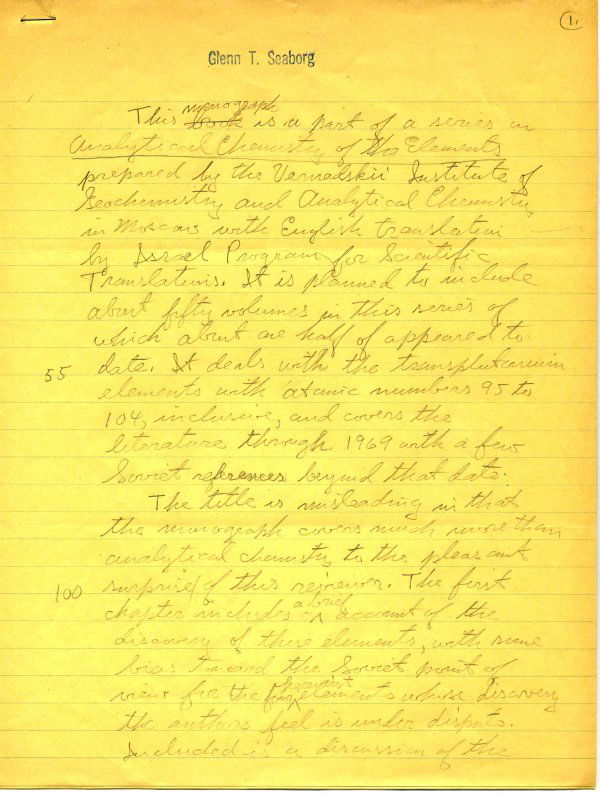 1.
Glenn T. Seaborg
monograph
This book is a part of a series on
Analytical Chemistry of the Elements
prepared by the Vernadskii Institute of
Geochemistry and Analytical Chemistry
in Moscow with English translation
by Israel Program for Scientific
Translations. It is planned to include
about fifty volumes in this series of
which about one half of appeared to
55 date. It deals with the transplutonium
elements with atomic numbers 95 to
104, inclusive, and covers the
literature through 1969 with a few
Soviet references beyond that date.
The title is misleading in that
the monograph covers much more than
analytical chemistry to the pleasant
100 surprise of this reviewer. The first
a brief
chapter includes account of the
discovery of these elements, with some
bias toward the Soviet point of
heaviest
view for the elements whose discovery
the authors feel is under dispute.
Included is a discussion of the